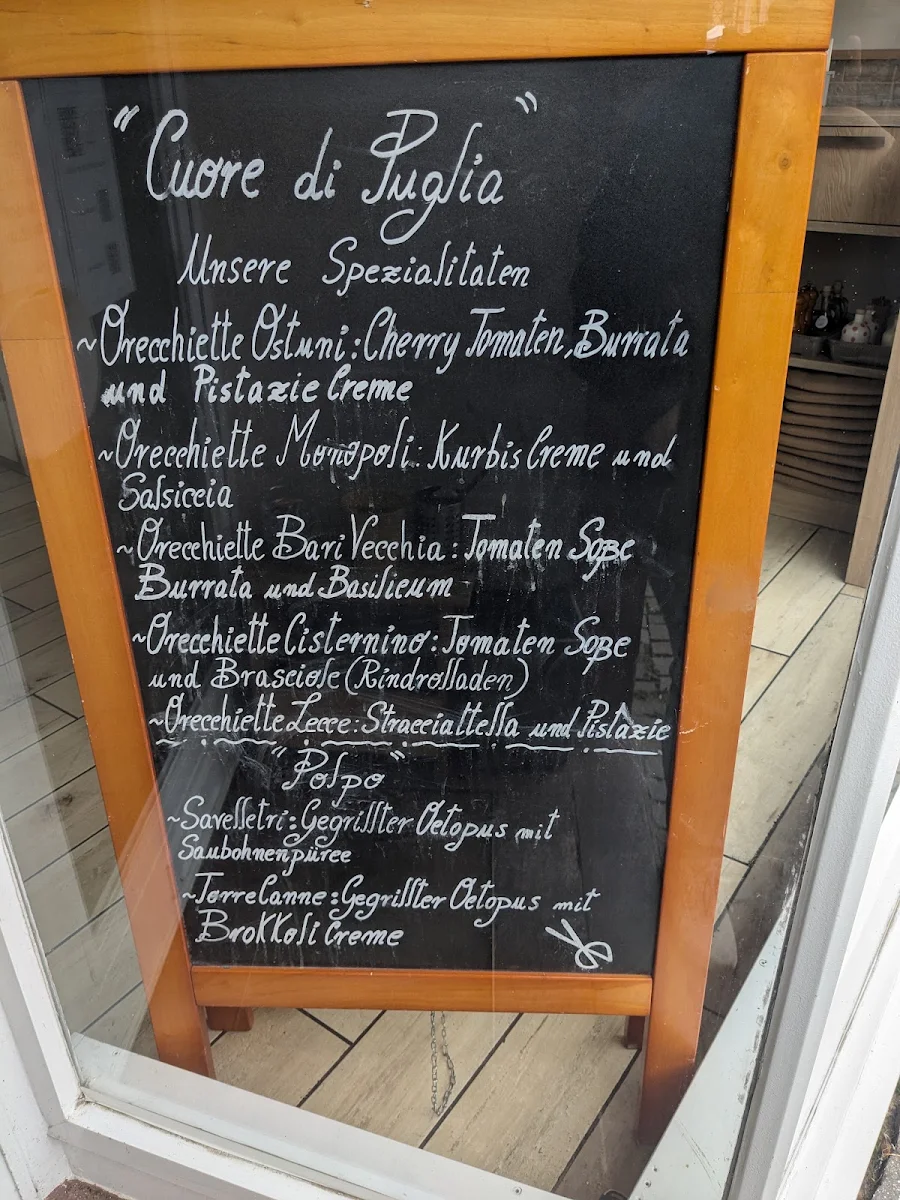 "Cuore di Puglia"
Unsere Spezialitaten
~Orecchiette Ostuni: Cherry Tomaten, Burrata
und Pistazie Creme
~Orecchiette Monopoli: Kurbis Creme und
Salsiccia
~Orecchiette Bari Vecchia: Tomaten Soße
Burrata und Basilicum
~Orecchiette Cisternino: Tomaten Soße
und Brasciole (Rindrolladen)
~Orecchiette Lecce: Stracciattella und Pistazie
"Polpo"
~Savelletri: Gegrillter Octopus mit
Saubohnenpüree
~Torre Canne: Gegrillter Octopus mit
Brokkoli Creme